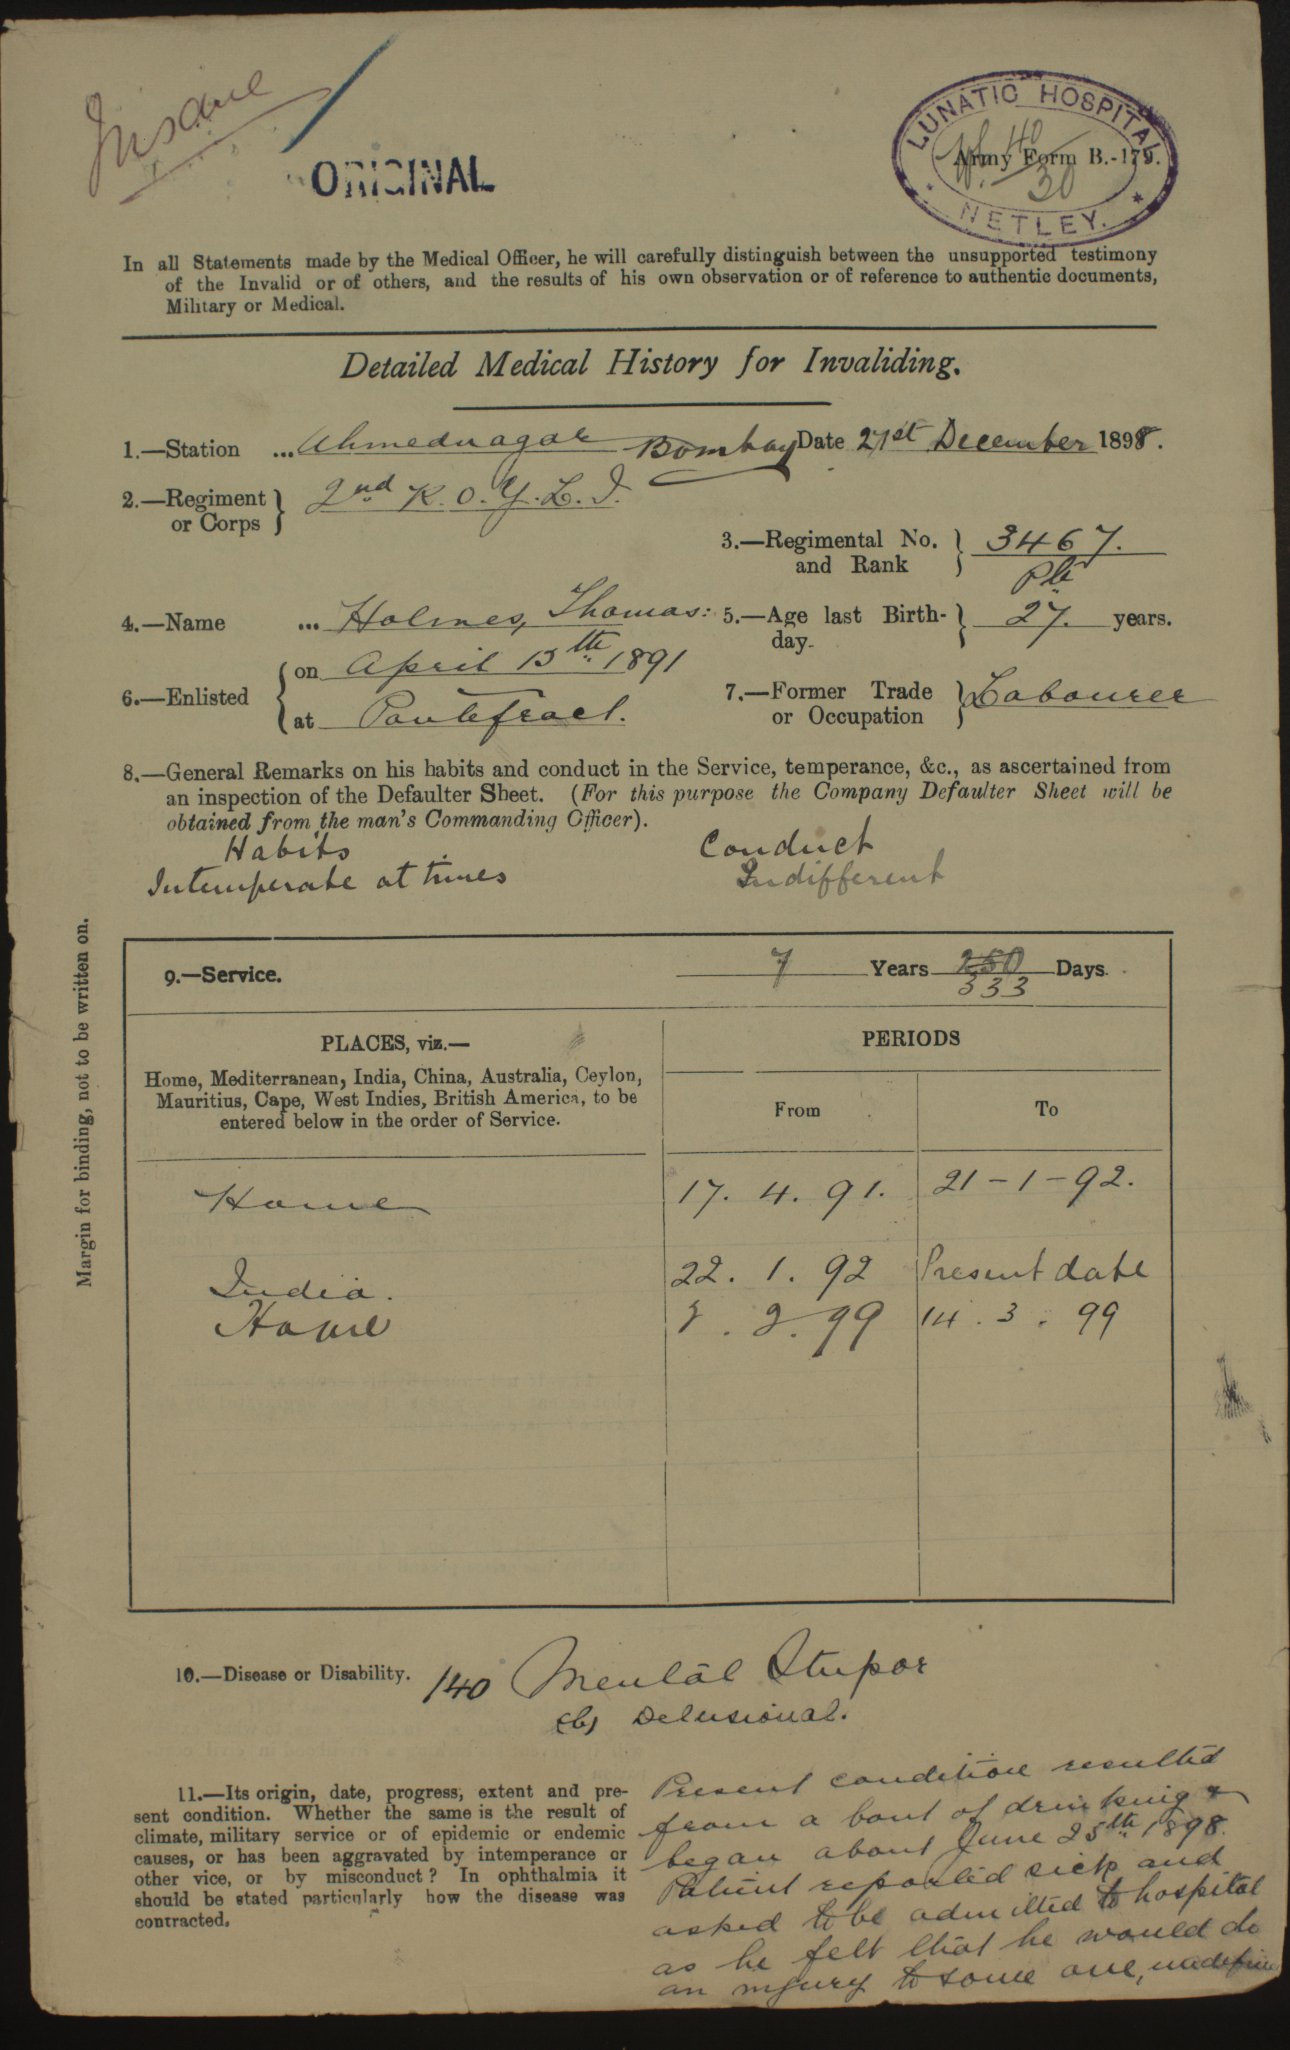 Insane
ORIGINAL
LUNATIC HOSPITAL
40
Army Form B.-179.
30
NETLEY.
In all Statements made by the Medical Officer, he will carefully distinguish between the unsupported testimony
of the Invalid or of others, and the results of his own observation or of reference to authentic documents,
Military or Medical.
Detailed Medical History for Invaliding.
1.—Station ... Ahmednagar Bombay Date 21st December 1898.
2.—Regiment or Corps } 2nd K.O.Y.L.I.
3.—Regimental No. and Rank } 3467. Pte
4.—Name ... Holmes, Thomas: 5.—Age last Birth-day. } 27. years.
6.—Enlisted { on April 13th 1891
at Pontefract.
7.—Former Trade or Occupation } Labourer
8.—General Remarks on his habits and conduct in the Service, temperance, &c., as ascertained from
an inspection of the Defaulter Sheet. (For this purpose the Company Defaulter Sheet will be
obtained from the man's Commanding Officer).
Habits Conduct
Intemperate at times Indifferent
Margin for binding, not to be written on.
9.—Service. 7 Years 250 Days
333
PLACES, viz.— PERIODS
Home, Mediterranean, India, China, Australia, Ceylon,
Mauritius, Cape, West Indies, British America, to be
entered below in the order of Service.
From To
Home 17. 4. 91. 21-1-92.
India. 22. 1. 92 Present date
Home 2. 99 14. 3. 99
10.—Disease or Disability. 140 Mental Stupor
(b) Delusional.
11.—Its origin, date, progress, extent and pre-
sent condition. Whether the same is the result of
climate, military service or of epidemic or endemic
causes, or has been aggravated by intemperance or
other vice, or by misconduct? In ophthalmia it
should be stated particularly how the disease was
contracted.
Present condition resulted
from a bout of drinking &
began about June 25th 1898.
Patient reported sick and
asked to be admitted to hospital
as he felt that he would do
an injury to some one,